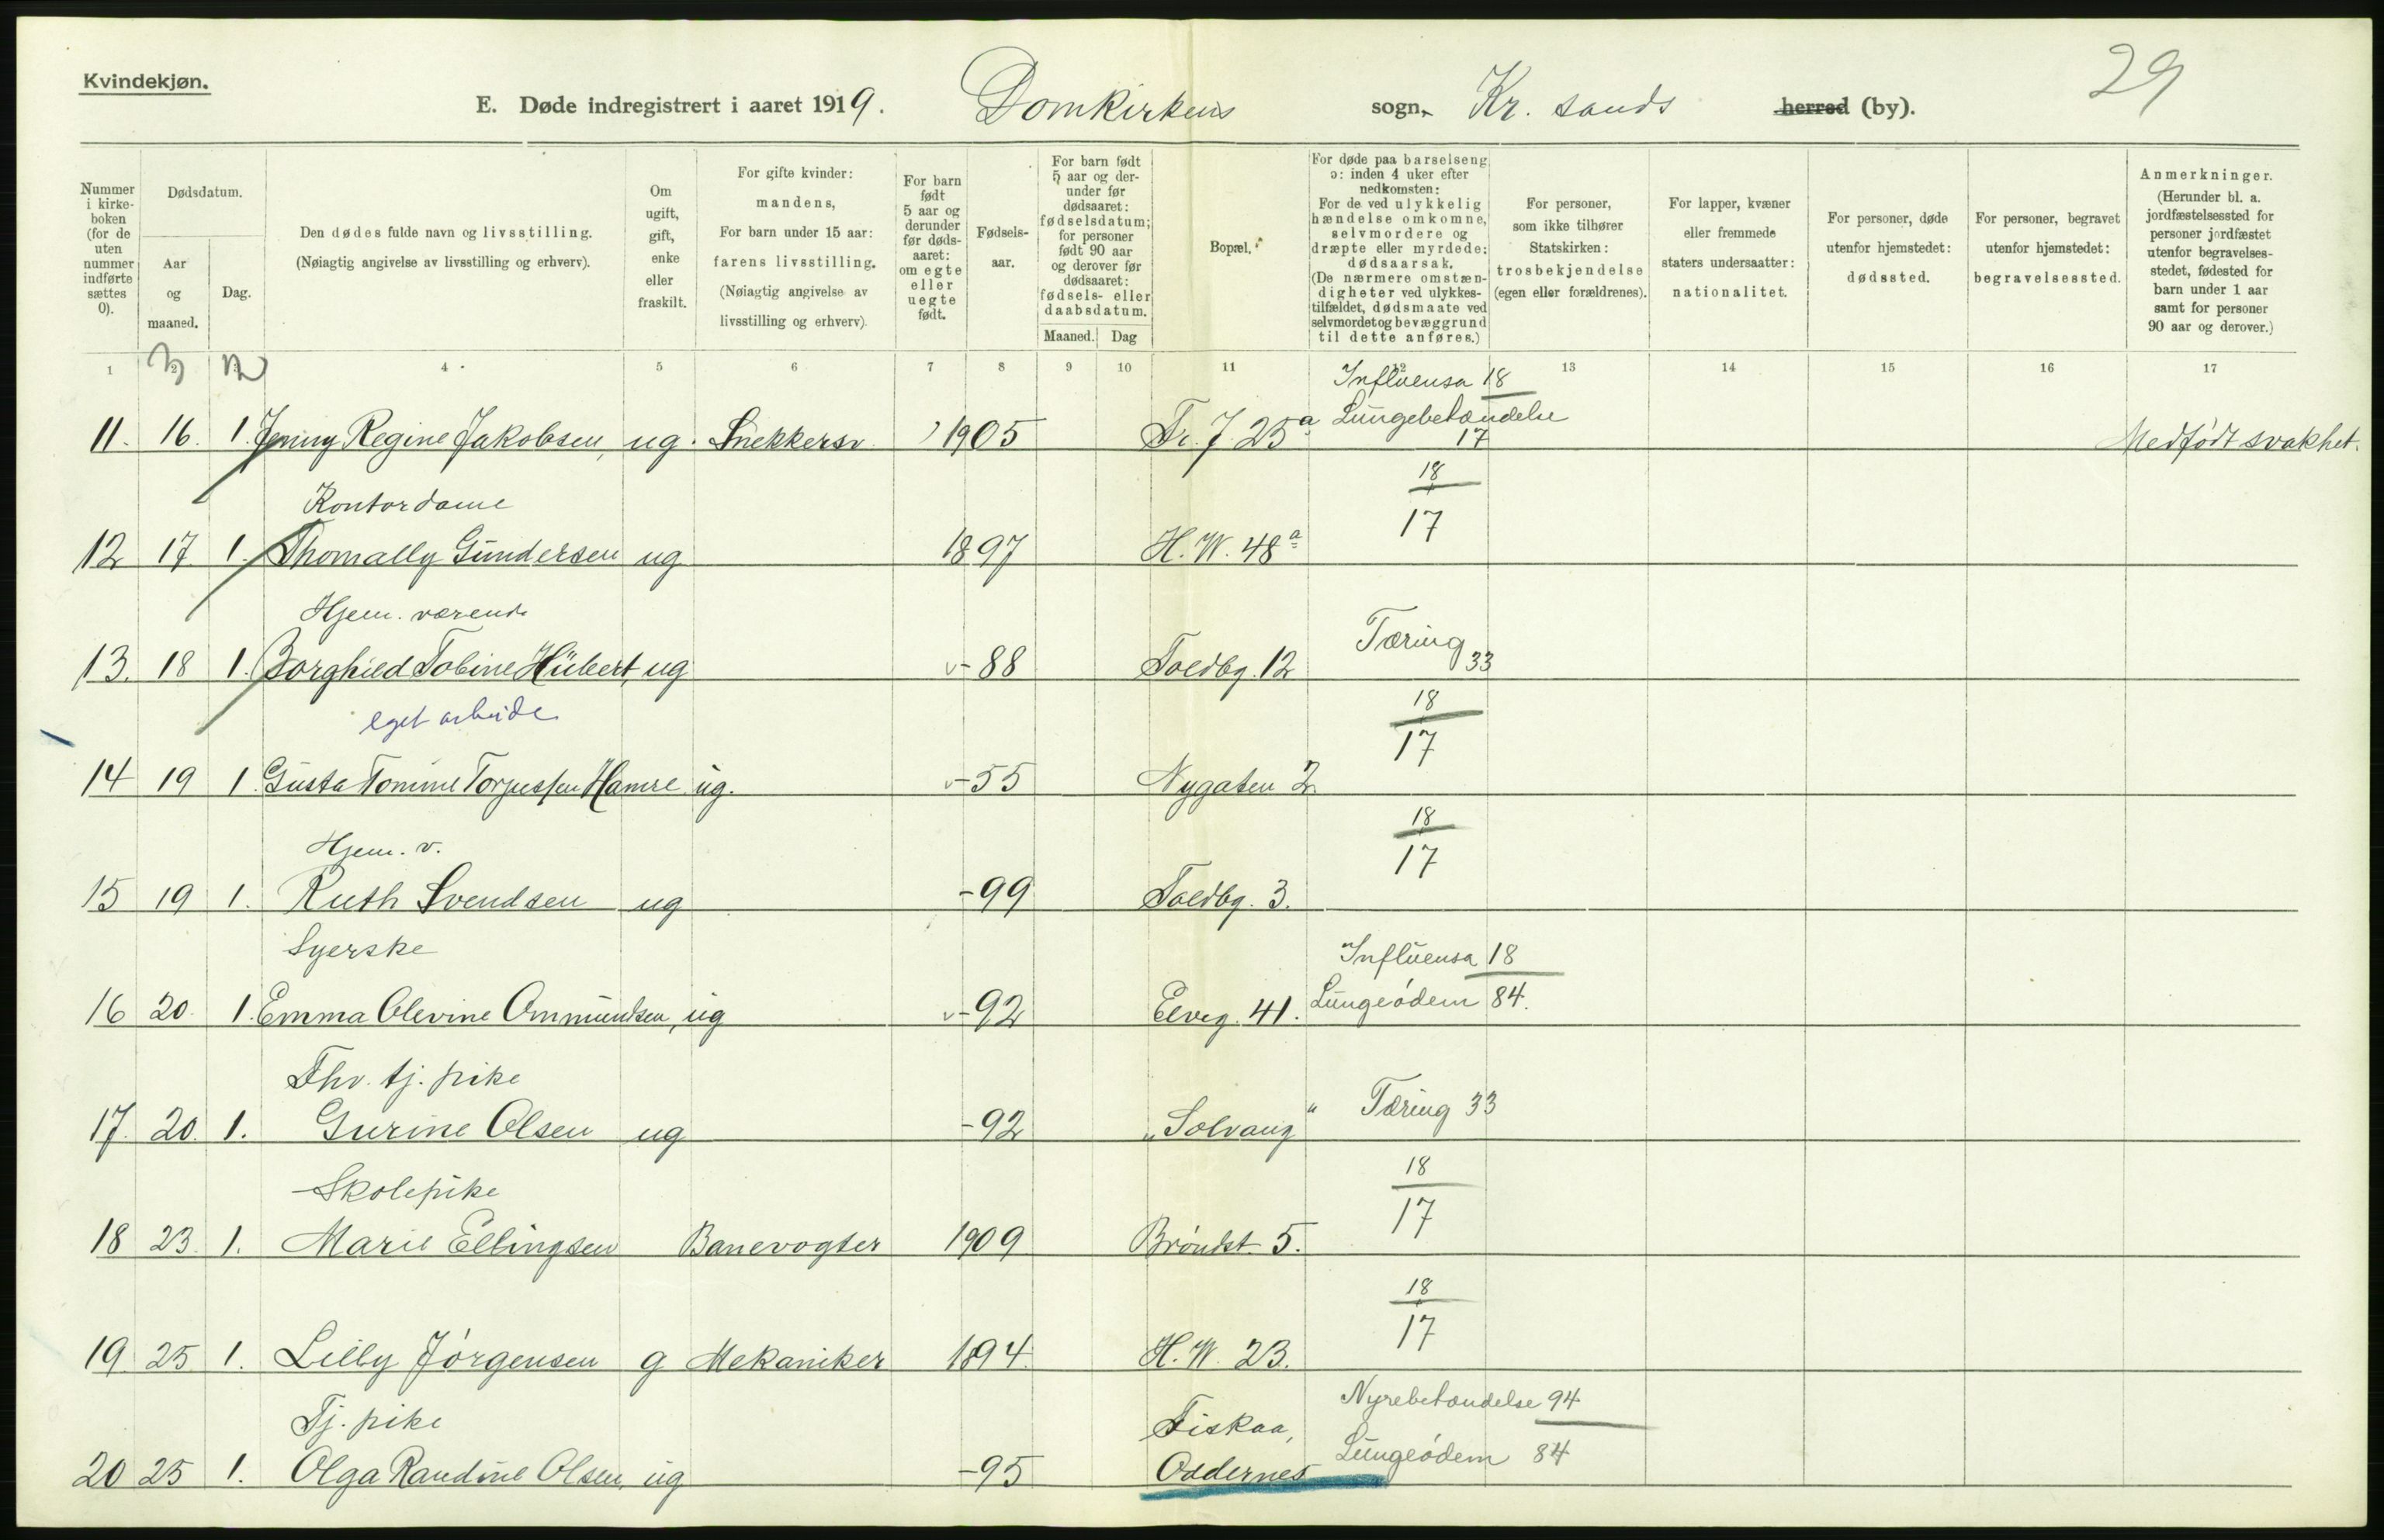 Kvindekjøn.
E. Døde indregistrert i aaret 1919. Domkirkens sogn, Kr. sands herred (by). 29
Nummer i kirkeboken (for de uten nummer indførte sættes 0).
Dødsdatum.
Aar og maaned.
Dag.
Den dødes fulde navn og livsstilling.
(Nøiagtig angivelse av livsstilling og erhverv).
Om ugift, gift, enke eller fraskilt.
For gifte kvinder: mandens,
For barn under 15 aar: farens livsstilling.
(Nøiagtig angivelse av livsstilling og erhverv).
For barn født 5 aar og derunder før dødsaaret: om egte eller uegte født.
Fødselsaar.
For barn født 5 aar og derunder før dødsaaret: fødselsdatum; for personer født 90 aar og derover før dødsaaret: fødsels- eller daabsdatum.
Maaned. Dag
Bopæl.
For døde paa barselseng ɔ: inden 4 uker efter nedkomsten:
For de ved ulykkelig hændelse omkomne, selvmordere og dræpte eller myrdede: dødsaarsak.
(De nærmere omstændigheter ved ulykkestilfældet, dødsmaate ved selvmordet og bevæggrund til dette anføres.)
For personer, som ikke tilhører Statskirken: trosbekjendelse (egen eller forældrenes).
For lapper, kvæner eller fremmede staters undersaatter: nationalitet.
For personer, døde utenfor hjemstedet: dødssted.
For personer, begravet utenfor hjemstedet: begravelsessted.
Anmerkninger.
(Herunder bl. a. jordfæstelsessted for personer jordfæstet utenfor begravelsesstedet, fødested for barn under 1 aar samt for personer 90 aar og derover.)
1 2 3 4 5 6 7 8 9 10 11 12 13 14 15 16 17
Influensa 18
Lungebetændelse
11. 16. 1. Jenny Regine Jakobsen, ug. Snekkersv. 1905 Fr. 7. 25a 17 Medfødt svakhet.
Kontordame 18
17
12 17. 1. Thomally Gundersen ug 1897 H. W. 48a
Hjem. værende Tæring
13. 18 1. Borghild Tobine Hübert, ug - 88 Toldbg. 12 33
eget arbeide 18
17
14 19 1. Gusta Tomine Torjussen Hamre ug. - 55 Nygaten 2
Hjem. v. 18
17
15 19 1. Ruth Svendsen ug - 99 Toldbg. 3.
Syerske Influensa 18
16 20. 1. Emma Olevine Ommundsen, ug - 92 Elveg. 41. Lungeødem 84.
Fhv. tj. pike
17. 20. 1. Gurine Olsen ug - 92 "Solvang" Tæring 33
Skolepike 18
17
18 23. 1. Marie Ellingsen Banevogter 1909 Brøndst. 5.
18
17
19 25 1. Lilly Jørgensen g Mekaniker 1894. H. W. 23.
Tj. pike Fiskaa, Nyrebetændelse 94
20 25 1. Olga Randine Olsen, ug - 95 Oddernes Lungeødem 84